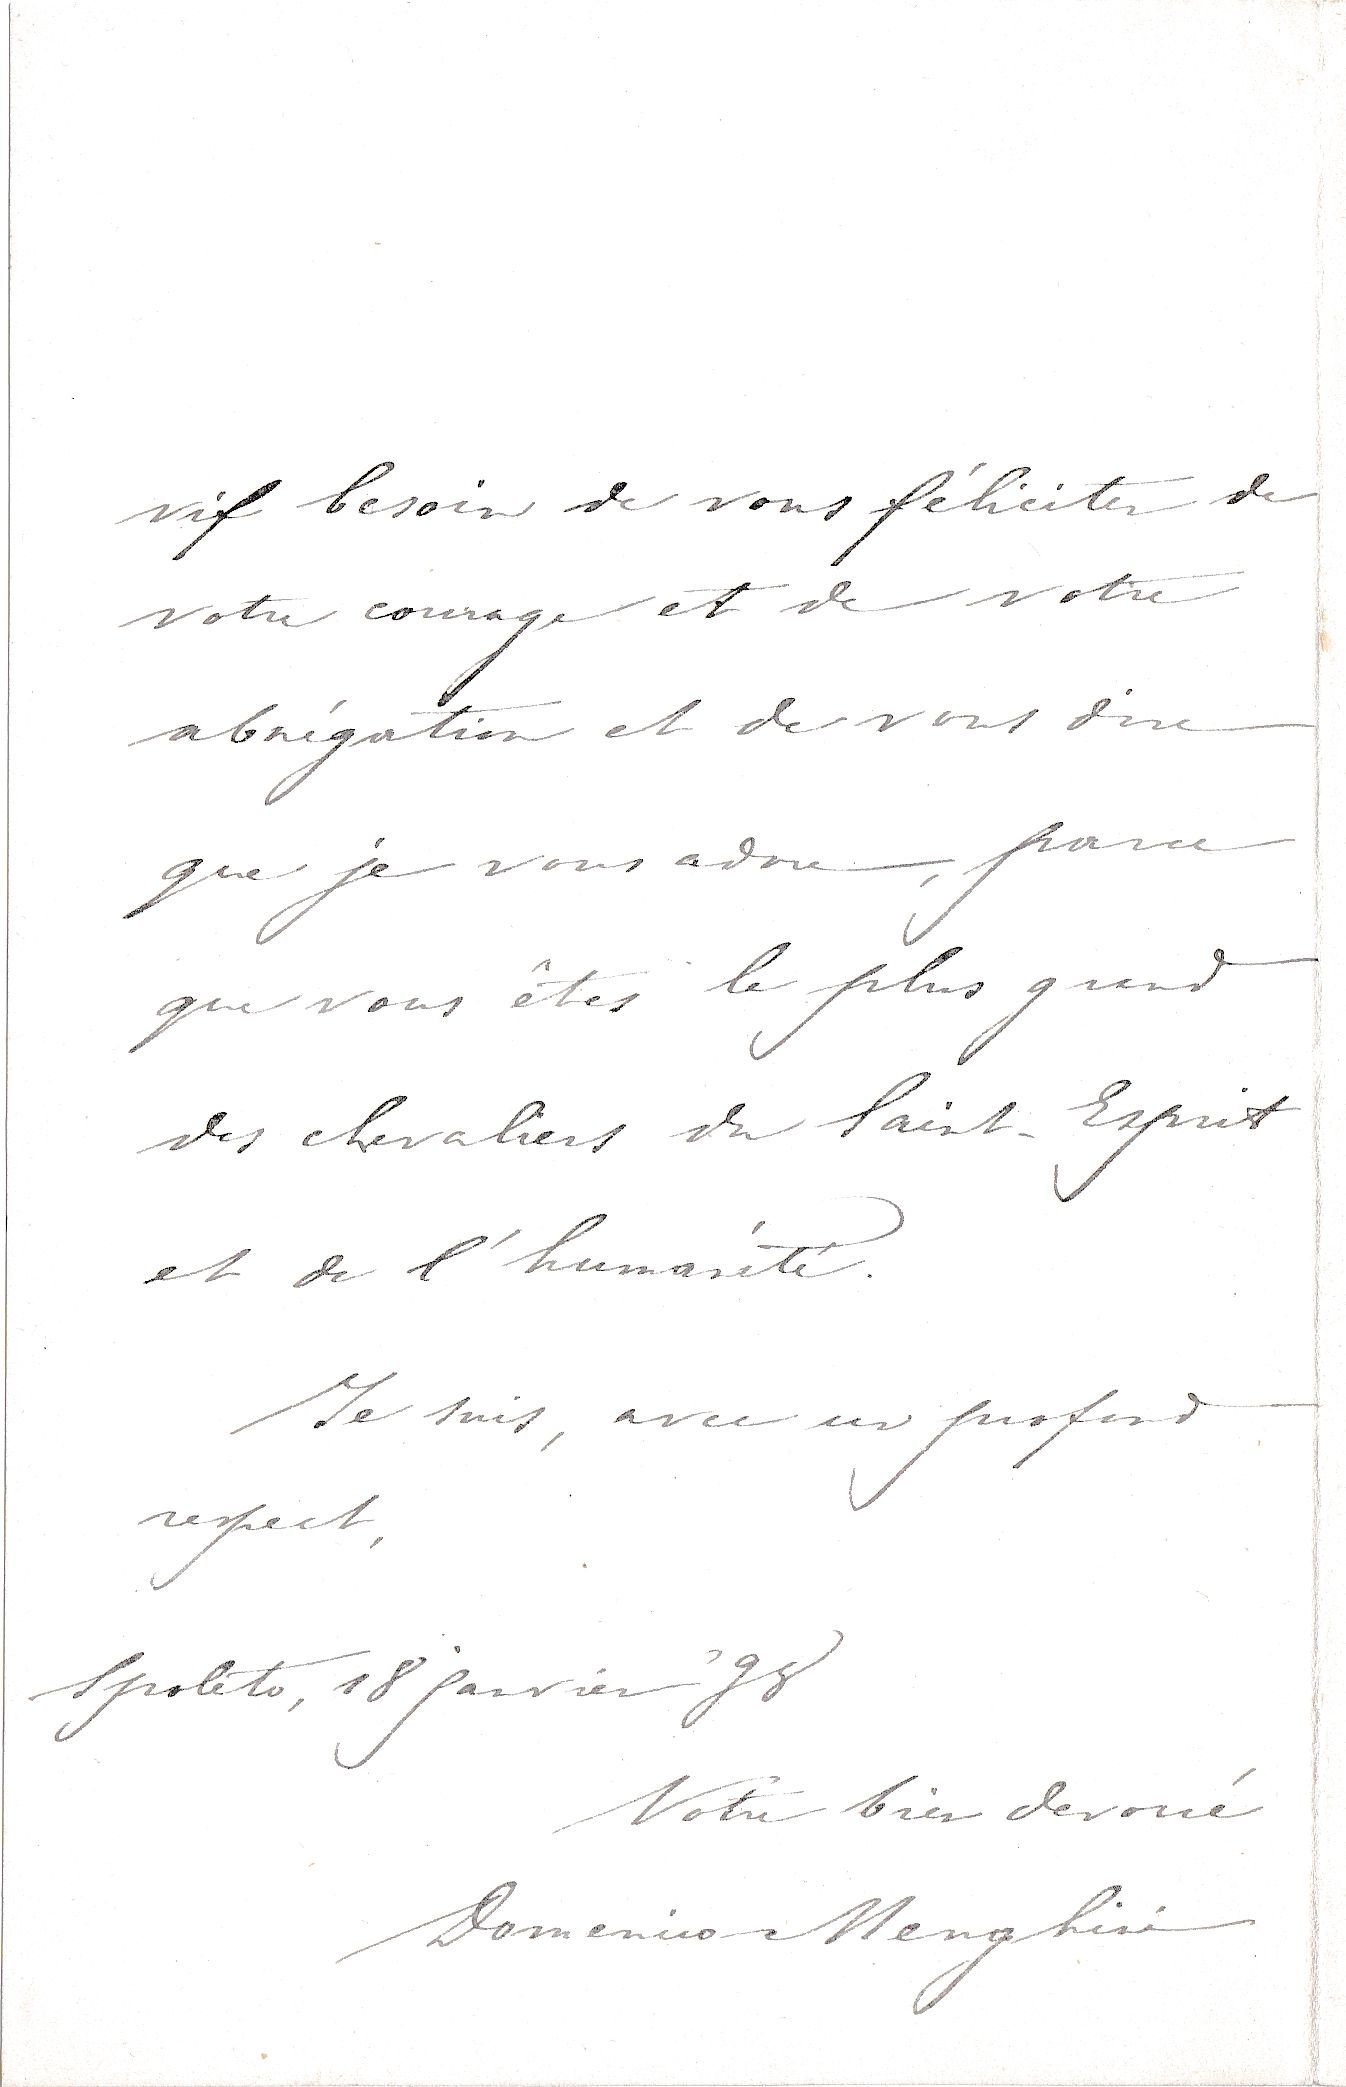 vif besoin de vous féliciter de
votre courage et de votre
abnégation et de vous dire
que je vous adore, parce
que vous êtes le plus grand
des chevaliers du Saint-Esprit
et de l'humanité.
Je suis, avec un profond
respect,
Spoleto, 18 janvier '98
Votre bien devoué
Domenico Menghini